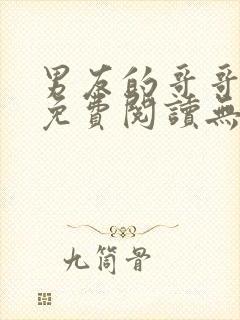 男友的哥哥
免費閱讀無
九筒骨